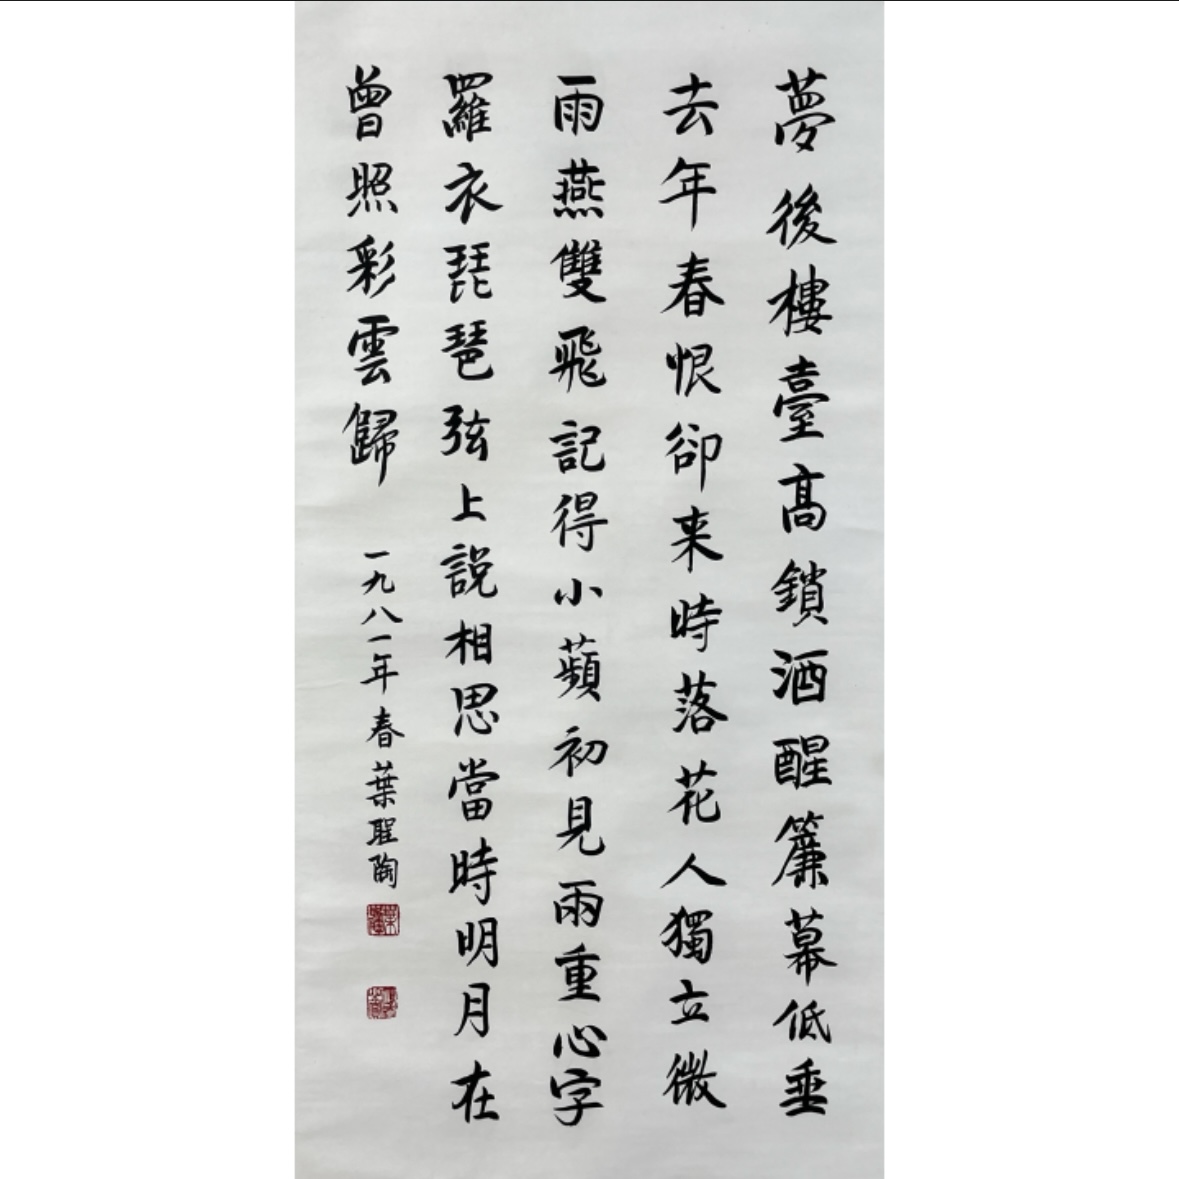 夢後樓臺高鎖酒醒簾幕低垂
去年春恨卻来時落花人獨立微
雨燕雙飛記得小蘋初見兩重心字
羅衣琵琶弦上説相思當時明月在
曾照彩雲歸
一九八一年春葉聖陶